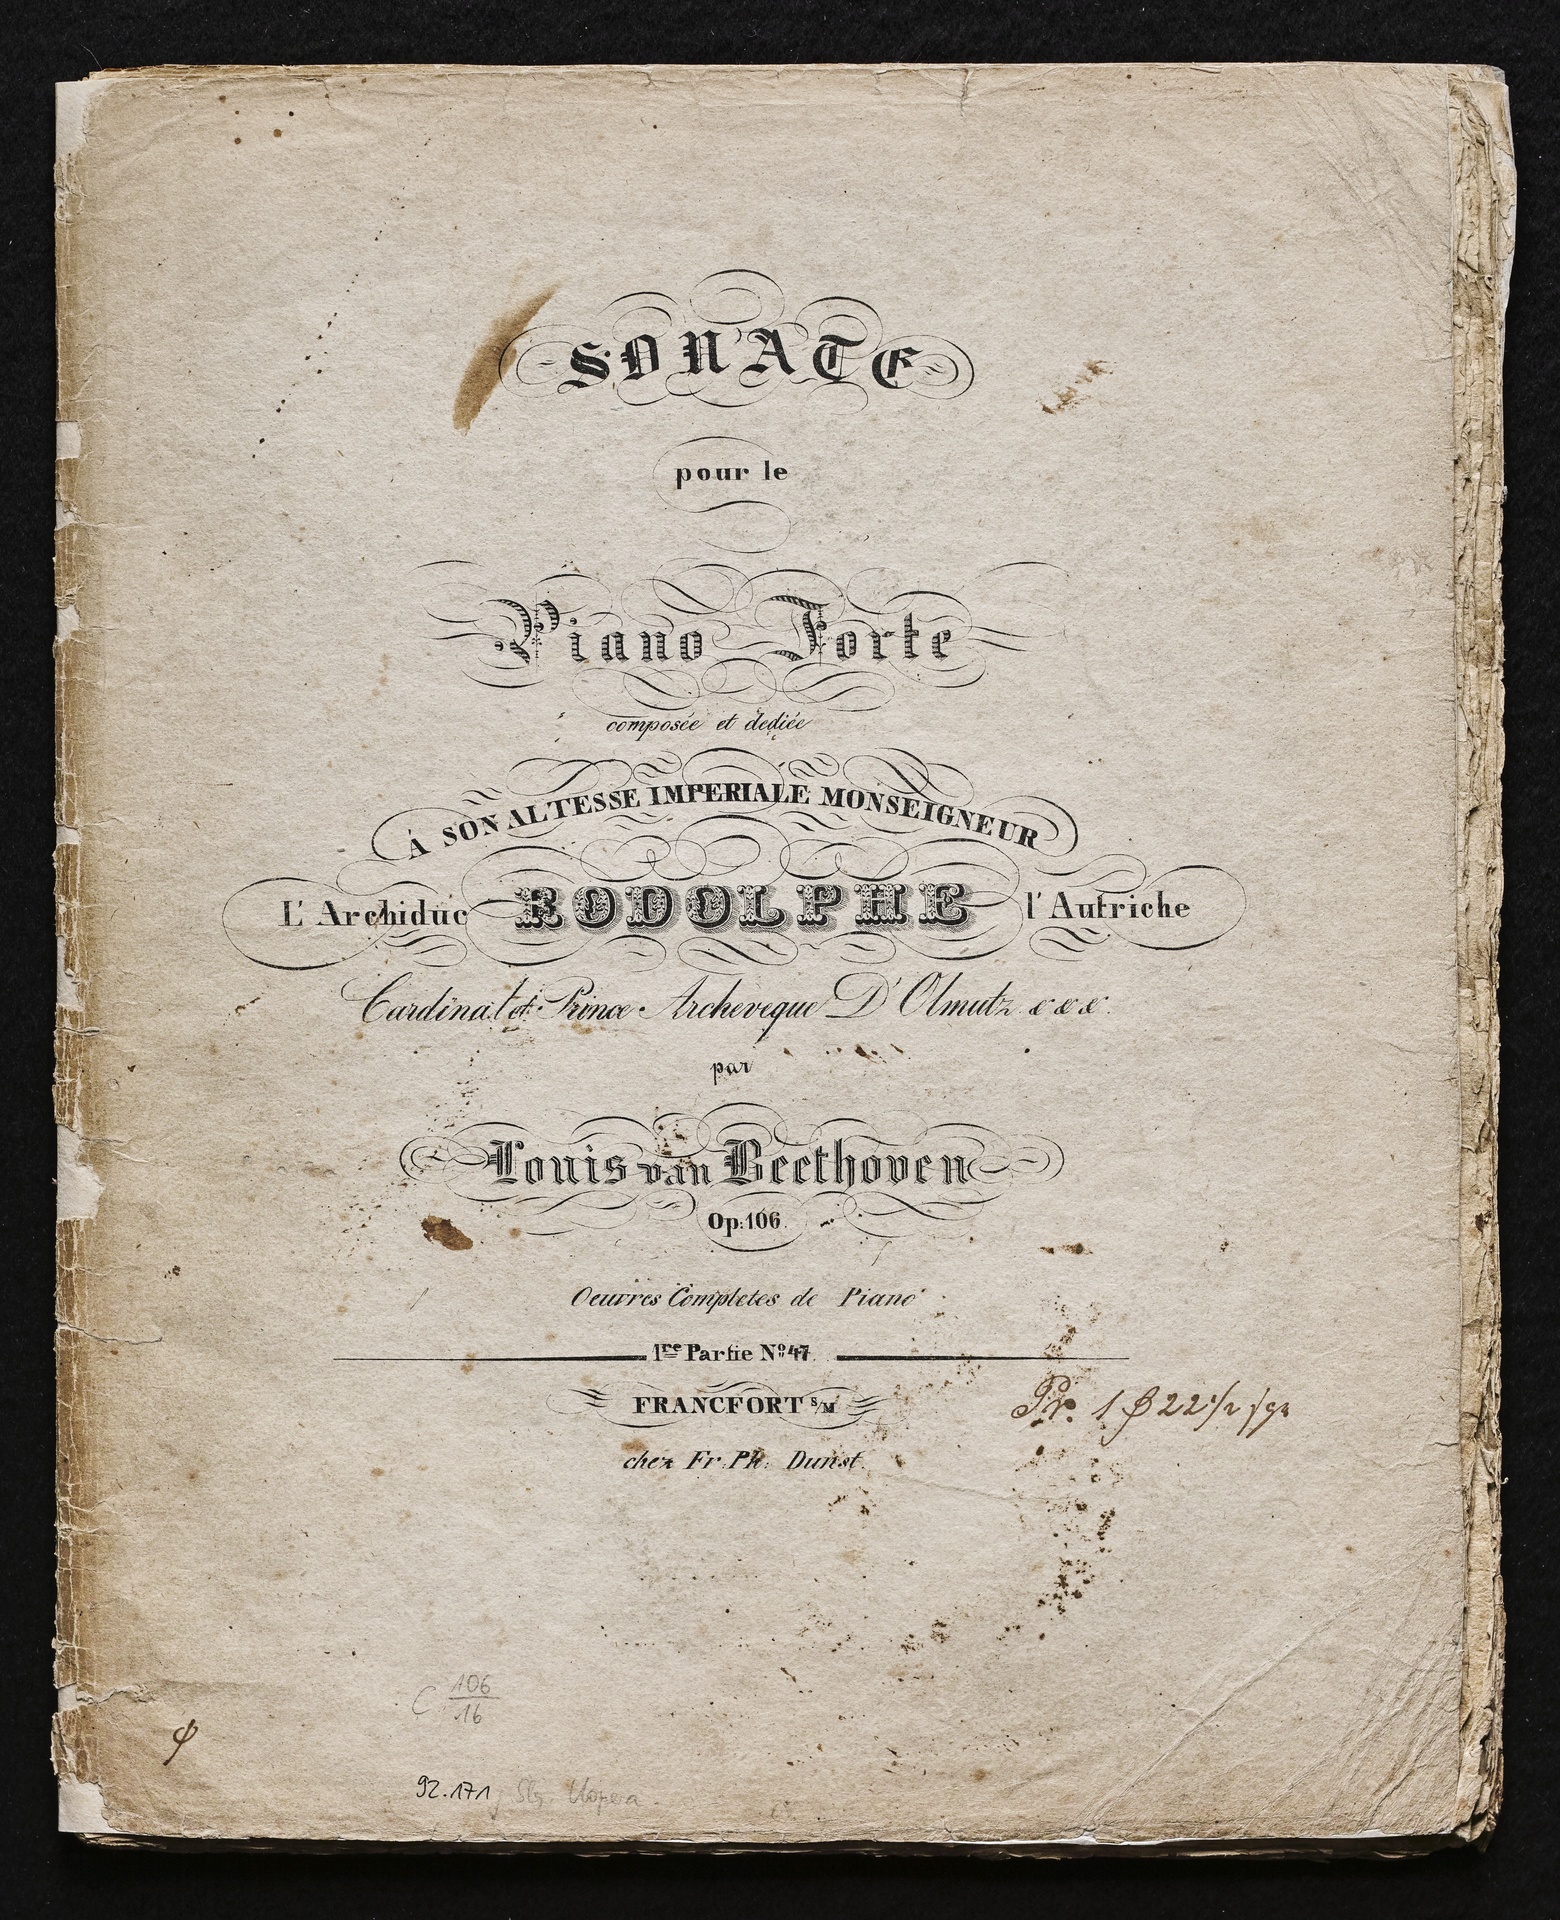 SONATE
pour le
Piano Forte
composée et dediée
À SON ALTESSE IMPERIALE MONSEIGNEUR
L'Archiduc RODOLPHE l'Autriche
Cardinal et Prince Archeveque D'Olmutz &&&.
par
Louis van Beethoven
Op:106.
Oeuvres Completes de Piano
1re Partie No 47.
FRANCFORT s/M
Pr. 1 22 1/2 sgr
chez Fr. Ph: Dunst.
C 106/16
92.171